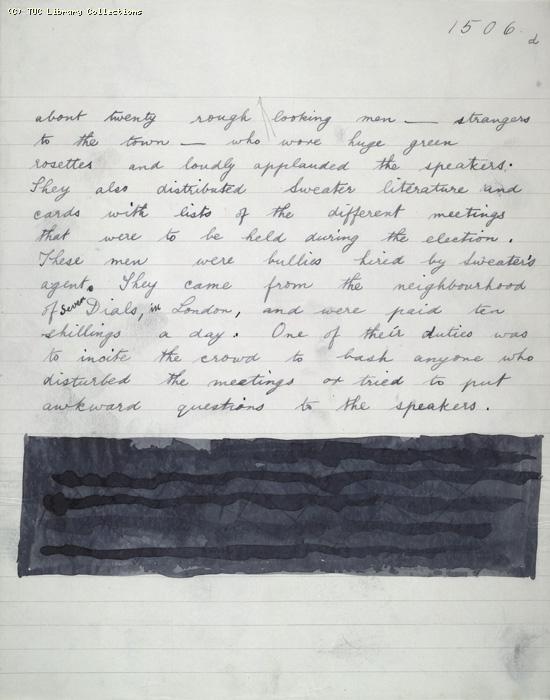 (C) TUC Library Collections
1506
d
about twenty rough looking men — strangers
to the town — who wore huge green
rosettes and loudly applauded the speakers.
They also distributed Sweater literature and
cards with lists of the different meetings
that were to be held during the election.
These men were bullies hired by Sweater's
agent. They came from the neighbourhood
of Seven Dials, in London, and were paid ten
shillings a day. One of their duties was
to incite the crowd to bash anyone who
disturbed the meetings or tried to put
awkward questions to the speakers.